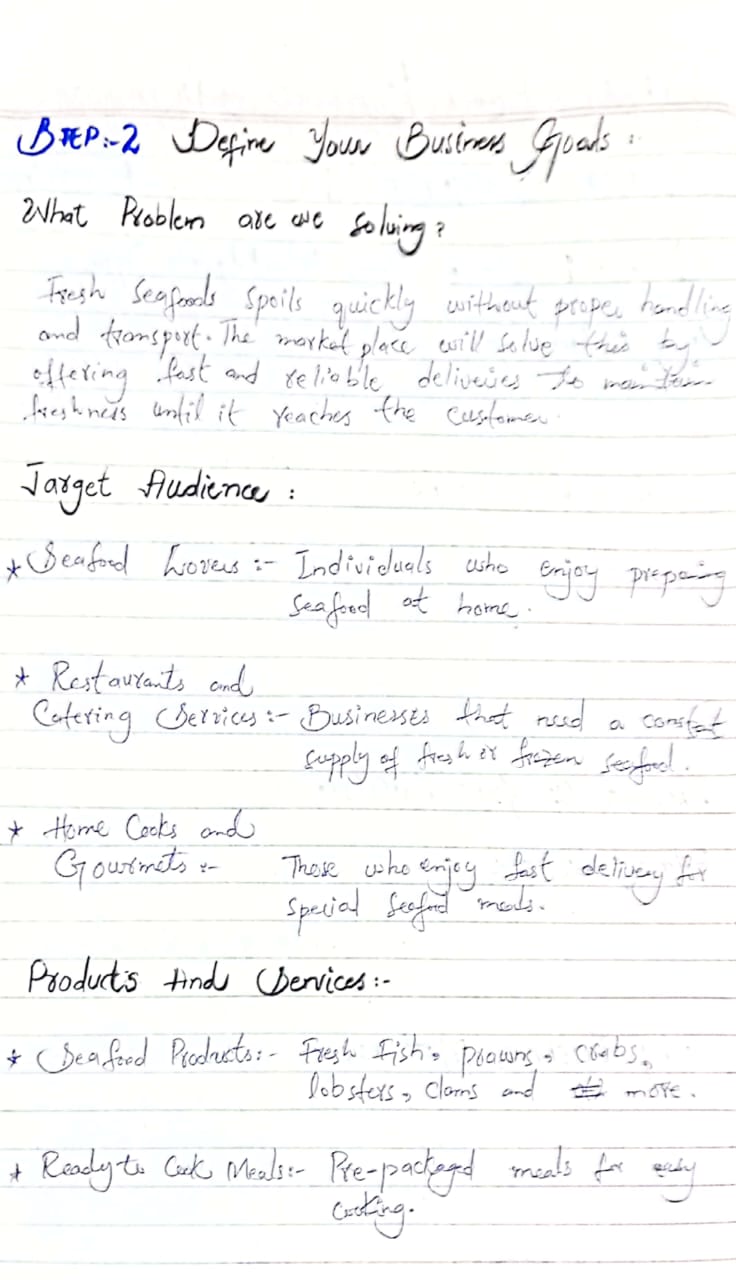 STEP:-2 Define Your Business Goals :
What Problem are we solving?
Fresh Seafoods Spoils quickly without proper handling
and transport. The market place will solve this by
offering fast and reliable deliveries to maintain
freshness until it reaches the customer.
Target Audience :
* Seafood Lovers :- Individuals who enjoy preparing
seafood at home.
* Restaurants and
Catering Services :- Businesses that need a constant
supply of fresh or frozen seafood.
* Home Cooks and
Gourmets :- Those who enjoy fast delivery for
special seafood meals.
Products And Services :-
* Seafood Products :- Fresh Fish, prawns, crabs,
lobsters, clams and more.
* Ready to Cook Meals :- Pre-packaged meals for easy
cooking.